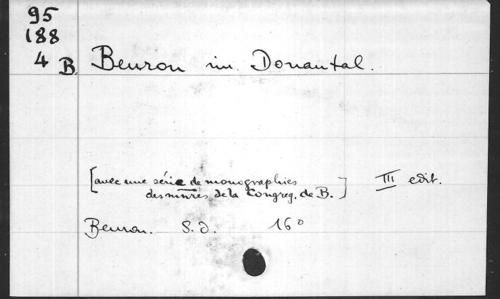 95
188
4 B. Beuron im Donautal.
[avec une série de monographies III edit.
des mures de la Congreg. de B.]
Beuron. S. d. 16°